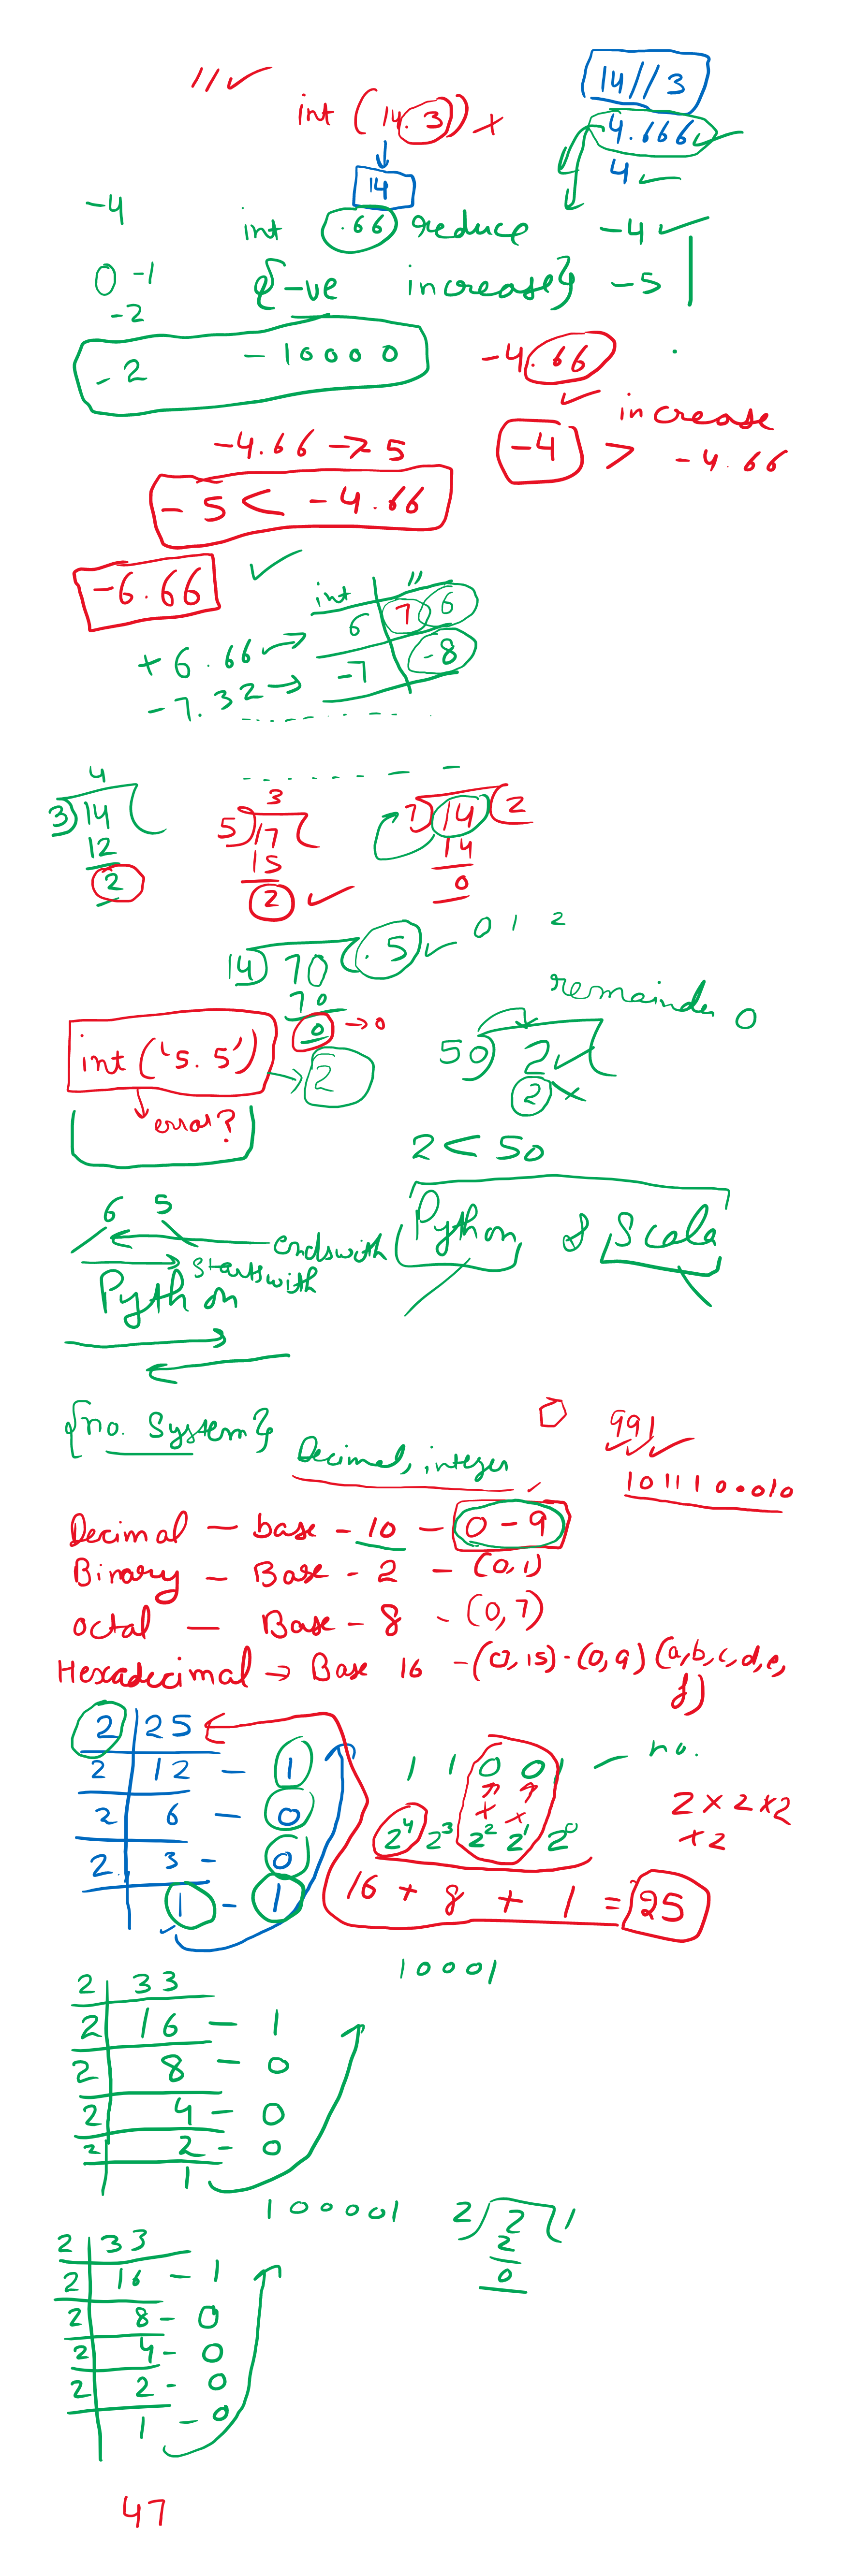 //
14//3
int (14.3)) x
4.666
14
4
-4
int .66 reduce
-4
0 -1
{-ve increase} -5
-2
-2 -10000
-4.66
increase
-4.66 -> 5
-4 > -4.66
-5 < -4.66
-6.66
int //
6 7 6
+6.66 ->
-7 -8
-7.32 ->
4
3) 14 (
12
2
3
5) 17 (
15
2
7) 14 ( 2
14
0
0 1 2
14) 70 ( .5
70
0 -> 0
remainder 0
int ('5.5') -> 2
error?
50) 2 (
2 x
2 < 50
6 5
endswith
startswith
Python
Python & Scala
{no. System}
0 991
Decimal, integer
10111 0.010
Decimal - base - 10 - 0 - 9
Binary - Base - 2 - (0,1)
octal - Base - 8 - (0,7)
Hexadecimal -> Base 16 - (0,15) - (0,9) (a,b,c,d,e,
f)
2 25
2 12 - 1
2 6 - 0
2 3 - 0
1 - 1
1 1 0 0 1 - no.
x x
2⁴ 2³ 2² 2¹ 2⁰
2 x 2 x 2
x 2
16 + 8 + 1 = 25
10001
2 33
2 16 - 1
2 8 - 0
2 4 - 0
2 2 - 0
1
100001
2) 2 ( 1
2
0
2 33
2 16 - 1
2 8 - 0
2 4 - 0
2 2 - 0
1 - 0
47